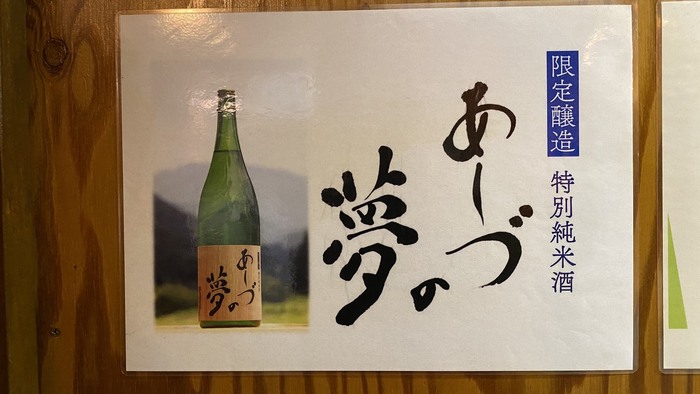 限定醸造
特別純米酒
あしづ
の
夢
あしづ
の
夢